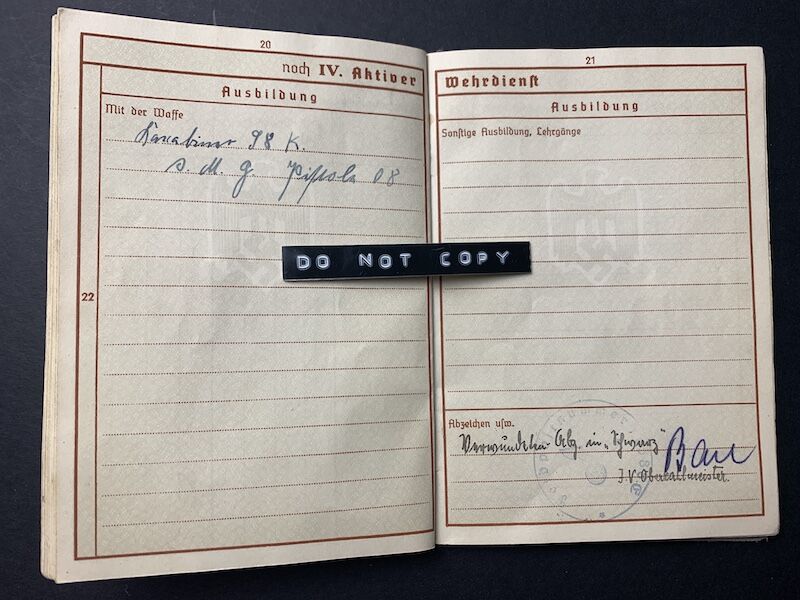 20
noch IV. Aktiver
Ausbildung
Mit der Waffe
Karabiner 98 K.
s. M. G Pistole 08
22
21
Wehrdienst
Ausbildung
Sonstige Ausbildung, Lehrgänge
DO NOT COPY
Abzeichen usw.
Verwundeten-Abz. in „Schwarz"
J.V.